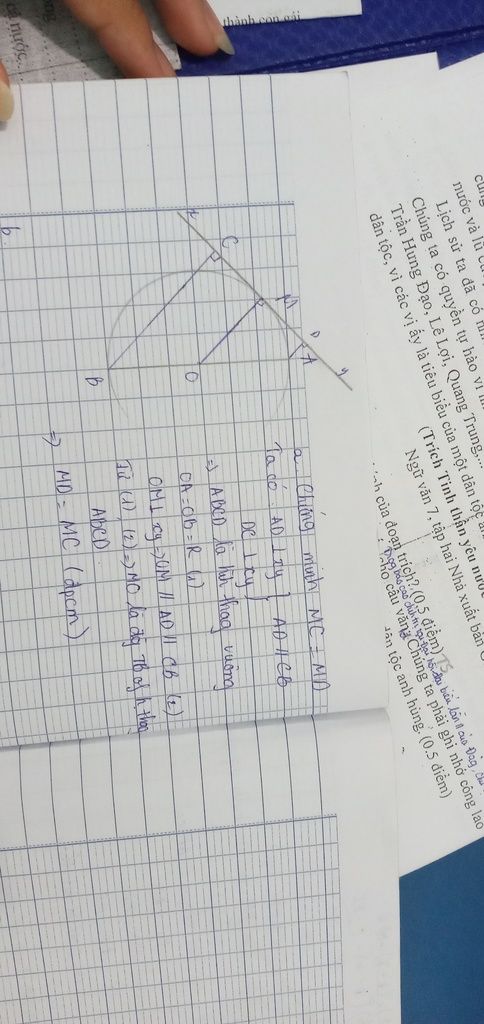 thành con gái
cả nước...
nước và lũ
Lịch sử ta đã có
Chúng ta có quyền tự hào vì
Trần Hưng Đạo, Lê Lợi, Quang Trung,...
dân tộc, vì các vị ấy là tiêu biểu của một dân tộc
(Trích Tinh thần yêu nước
Ngữ văn 7, tập hai Nhà xuất bản
của đoạn trích? (0.5 điểm)
cho câu văn: Chúng ta phải ghi nhớ công lao
dân tộc anh hùng. (0.5 điểm)
x
C
M
D
A
y
O
B
a. Chứng minh MC = MD
Ta có: AD ⊥ xy } AD // CB
DC ⊥ xy
=> ABCD là hình thang vuông
OA = OB = R (1)
OM ⊥ xy => OM // AD // CB (2)
Từ (1), (2) => MC là đg tb of h thag
ABCD
=> MD = MC (đpcm)
b.